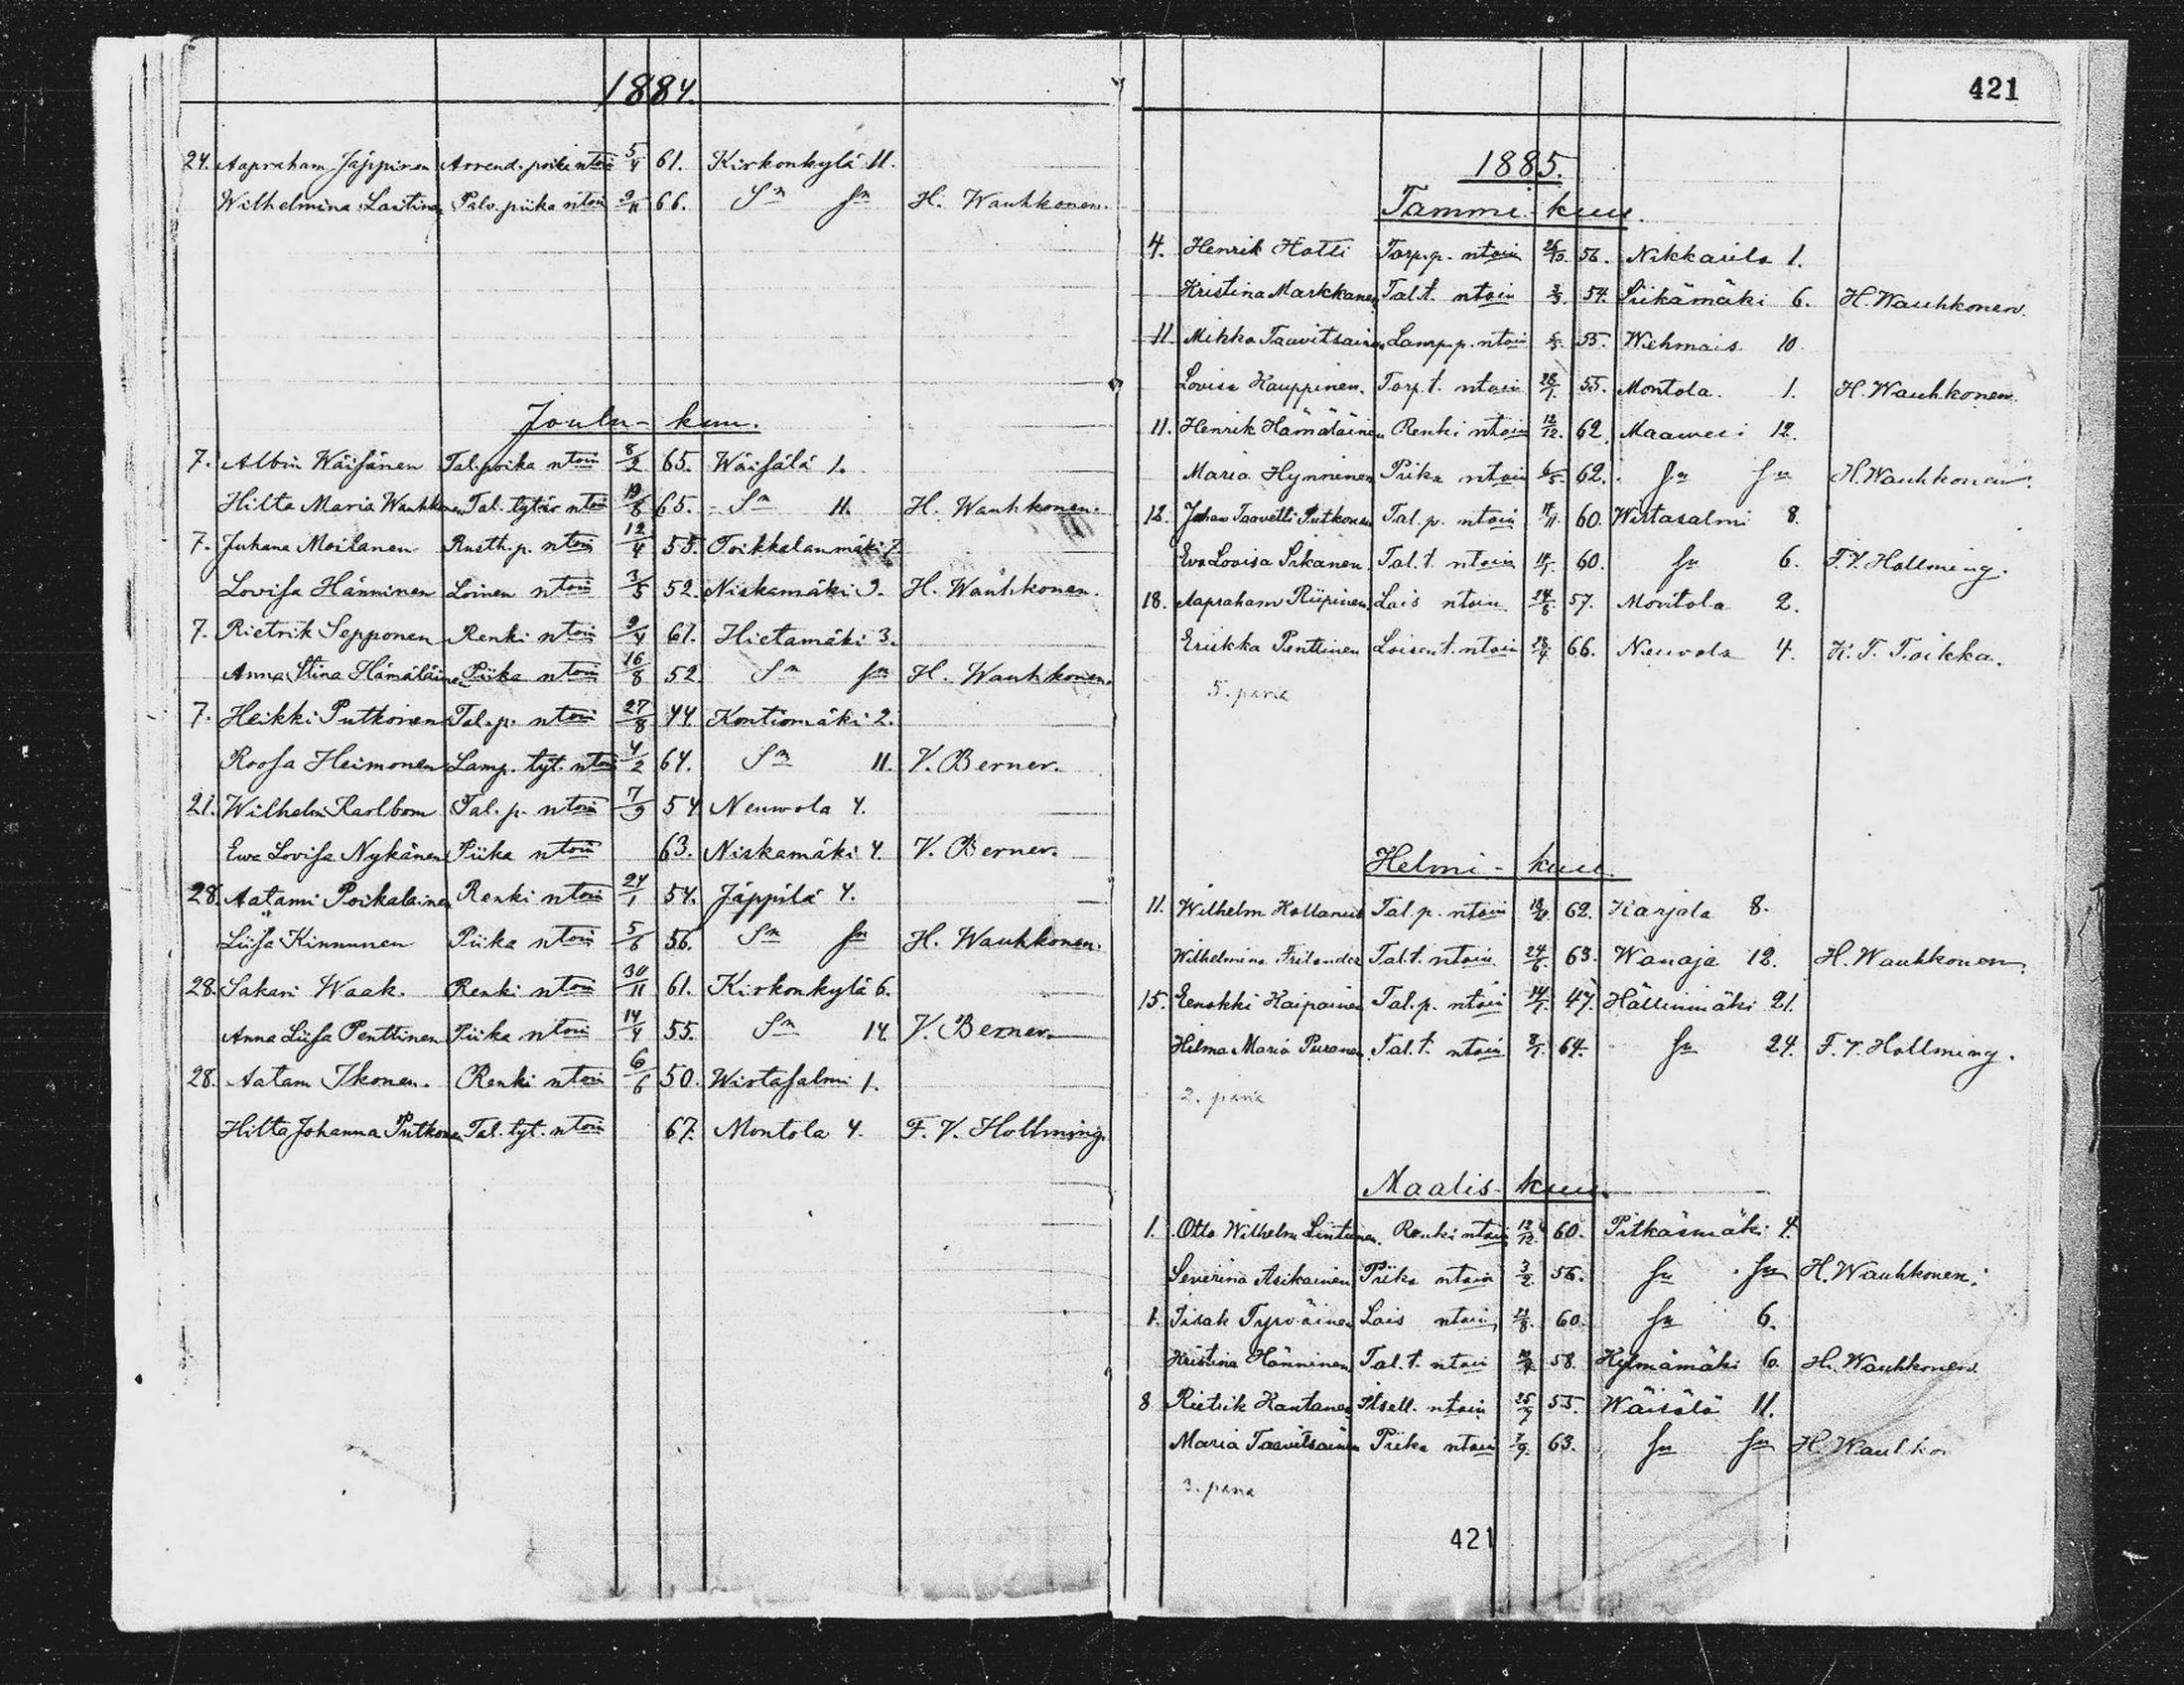 1884.
24. Aapraham Jäppinen Arrend. poika ntoin 5/4 61. Kirkonkylä 11.
Wilhelmina Laitinen Palv. piika ntoin 9/11 66. Sn sn H. Wauhkonen.
Joulu-kuu.
7. Albin Wäisänen Tal. poika ntoin 8/2 65. Wäisälä 1.
Hilta Maria Wauhkonen Tal. tytär ntoin 19/8 65. Sn 11. H. Wauhkonen.
7. Juhana Moilanen Rusth. p. ntoin 12/4 55. Toikkalanmäki 7.
Lovisa Hänninen Loinen ntoin 3/5 52. Niskamäki 9. H. Wauhkonen.
7. Rietrik Sepponen Renki ntoin 9/4 61. Hietamäki 3.
Anna Stina Hämäläinen Piika ntoin 16/8 52. Sn sn H. Wauhkonen.
7. Heikki Putkonen Tal. p. ntoin 27/8 44. Kontiomäki 2.
Roosa Heimonen Lamp. tyt. ntoin 4/2 64. Sn 11. V. Berner.
21. Wilhelm Karlbom Tal. p. ntoin 7/9 54 Neuwola 4.
Ewa Lovisa Nykänen Piika ntoin 63. Niskamäki 4. V. Berner.
28. Aatami Poikalainen Renki ntoin 24/1 54. Jäppilä 4.
Liisa Kinnunen Piika ntoin 5/6 56. Sn sn H. Wauhkonen.
28. Sakari Waak. Renki ntoin 30/11 61. Kirkonkylä 6.
Anna Liisa Penttinen Piika ntoin 14/4 55. Sn 14. V. Berner.
28. Aatam Ikonen. Renki ntoin 6/6 50. Wirtasalmi 1.
Hilta Johanna Putkonen Tal. tyt. ntoin 67. Montola 4. F. V. Hollming.
421
1885.
Tammi-kuu.
4. Henrik Hotti Torp. p. ntoin 56. Nikkarila 1.
Kristina Markkanen Tal. t. ntoin 54. Siikämäki 6. H. Wauhkonen.
11. Mikko Taavitsainen Lamp. p. ntoin 55. Wehmais 10.
Lovisa Kauppinen. Torp. t. ntoin 28/1. 55. Montola. 1. H. Wauhkonen.
11. Henrik Hämäläinen Renki ntoin 12/12. 62. Maavesi 12.
Maria Hynninen Piika ntoin 6/5. 62. sn sn H. Wauhkonen.
12. Johan Taavetti Putkonen Tal. p. ntoin 60. Wirtasalmi 8.
Eva Lovisa Pikanen. Tal. t. ntoin 60. sn 6. F. V. Hollming.
18. Aapraham Riipinen Lois ntoin. 24/8. 57. Montola 2.
Eriikka Penttinen Loisen t. ntoin 66. Neuvola 4. K. T. Toikka.
5. paria
Helmi-kuu.
11. Wilhelm Hollanus Tal. p. ntoin 62. Karjala 8.
Wilhelmina Frilander Tal. t. ntoin. 24/6. 63. Wanaja 12. H. Wauhkonen.
15. Eenokki Kaipainen Tal. p. ntoin 47. Hällinmäki 21.
Hilma Maria Puranen Tal. t. ntoin 8/1. 64. sn 24. F. V. Hollming.
2. paria
Maalis-kuu.
1. Otto Wilhelm Lintunen. Renki ntoin 12/12. 60. Pitkäsmäki 4.
Severina Asikainen Piika ntoin 3/2. 56. sn sn H. Wauhkonen.
1. Iisak Tyrväinen Lois ntoin 60. sn 6.
Kristina Hänninen Tal. t. ntoin 58. Kylmämäki 6. H. Wauhkonen.
8 Rietrik Kantanen Itsell. ntoin 25/7 55. Wäisälä 11.
Maria Taavitsainen Piika ntoin 63. sn sn H. Wauhkon
3. paria
421